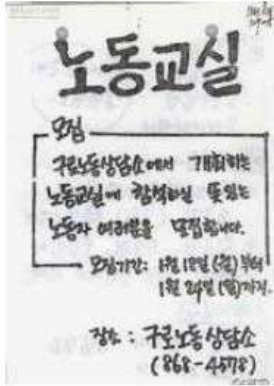 노동교실
모집
구로노동상담소에서 개최하는
노동교실에 참석하실 뜻있는
노동자 여러분을 모집합니다.
모집기간: 1월 18일 (월) 부터
1월 24일 (일)까지.
장소 : 구로노동상담소
(868-4578)